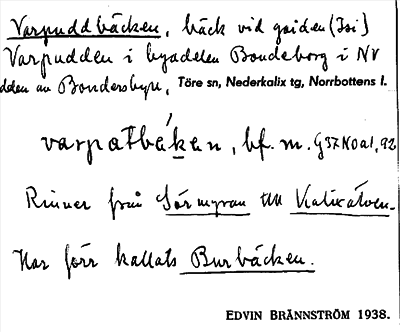 Varpuddbäcken, bäck vid gården (Isi)
Varpudden i byadelen Bondeborg i NV
delen av Bondersbyn, Töre sn, Nederkalix tg, Norrbottens l.
varpatbékan, bf. m.
Rinner från Sörmyran till Kalixälven.
Har förr kallats Burbäcken.
EDVIN BRÄNNSTRÖM 1938.